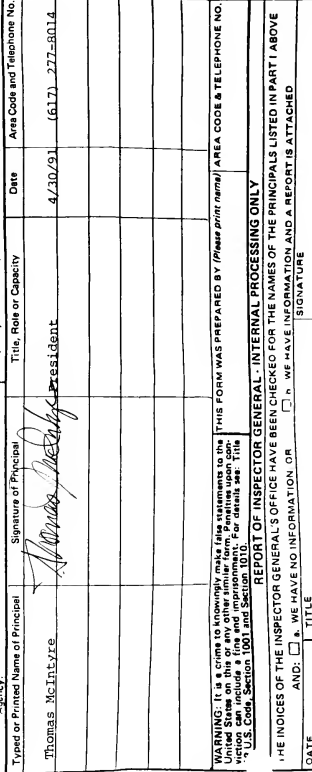 Agency.
Typed or Printed Name of Principal Signature of Principal Title, Role or Capacity Date Area Code and Telephone No.
Thomas McIntyre Thomas McIntyre President 4/30/91 (617) 277-8014
WARNING: It is a crime to knowingly make false statements to the
United States on this or any other similar form. Penalties upon con-
viction can include a fine and imprisonment. For details see: Title
U.S. Code, Section 1001 and Section 1010.
THIS FORM WAS PREPARED BY (Please print name) AREA CODE & TELEPHONE NO.
REPORT OF INSPECTOR GENERAL - INTERNAL PROCESSING ONLY
THE INDICES OF THE INSPECTOR GENERAL'S OFFICE HAVE BEEN CHECKED FOR THE NAMES OF THE PRINCIPALS LISTED IN PART I ABOVE
AND: a. WE HAVE NO INFORMATION OR WE HAVE INFORMATION AND A REPORT IS ATTACHED
DATE TITLE SIGNATURE